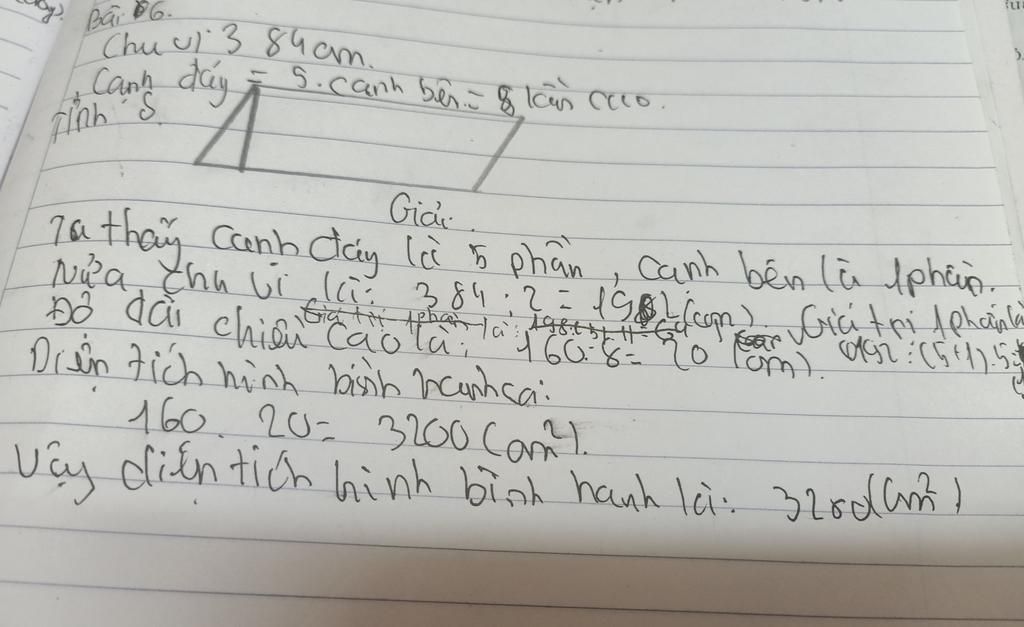 Bài 6.
Chu vi 384cm.
Canh đáy = 5.canh bên = 8 lần cao.
Tính S.
Giải.
Ta thấy canh đáy là 5 phần, canh bên là 1phần.
Nửa chu vi là: 384:2=192(cm) Giá trị 1phần là
Độ dài chiều cao là: 160:8=20 (cm). 192:(5+1).5=
Diện tích hình bình hanh là:
160.20= 3200(cm²).
Vậy diện tích hình bình hanh là: 3200(cm²)